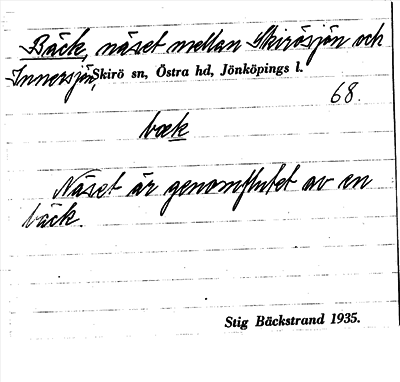 Bäck, näset mellan Skirösjön och
Innersjön, Skirö sn, Östra hd, Jönköpings l.
68.
bæk
Näset är genomflutet av en
bäck.
Stig Bäckstrand 1935.